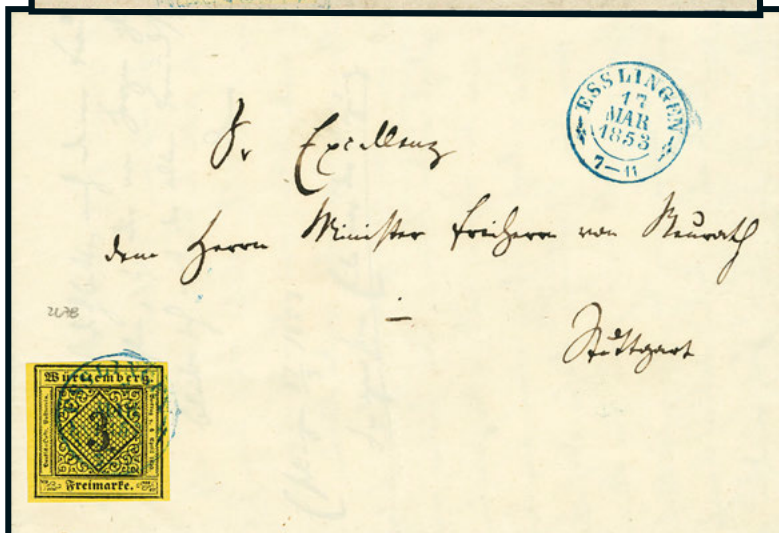 ESSLINGEN
17
MAR
1853
7–11
Sr Excellenz
dem Herrn Minister Freiherrn von Neurath
Stuttgart
Württemberg.
3
Freimarke.